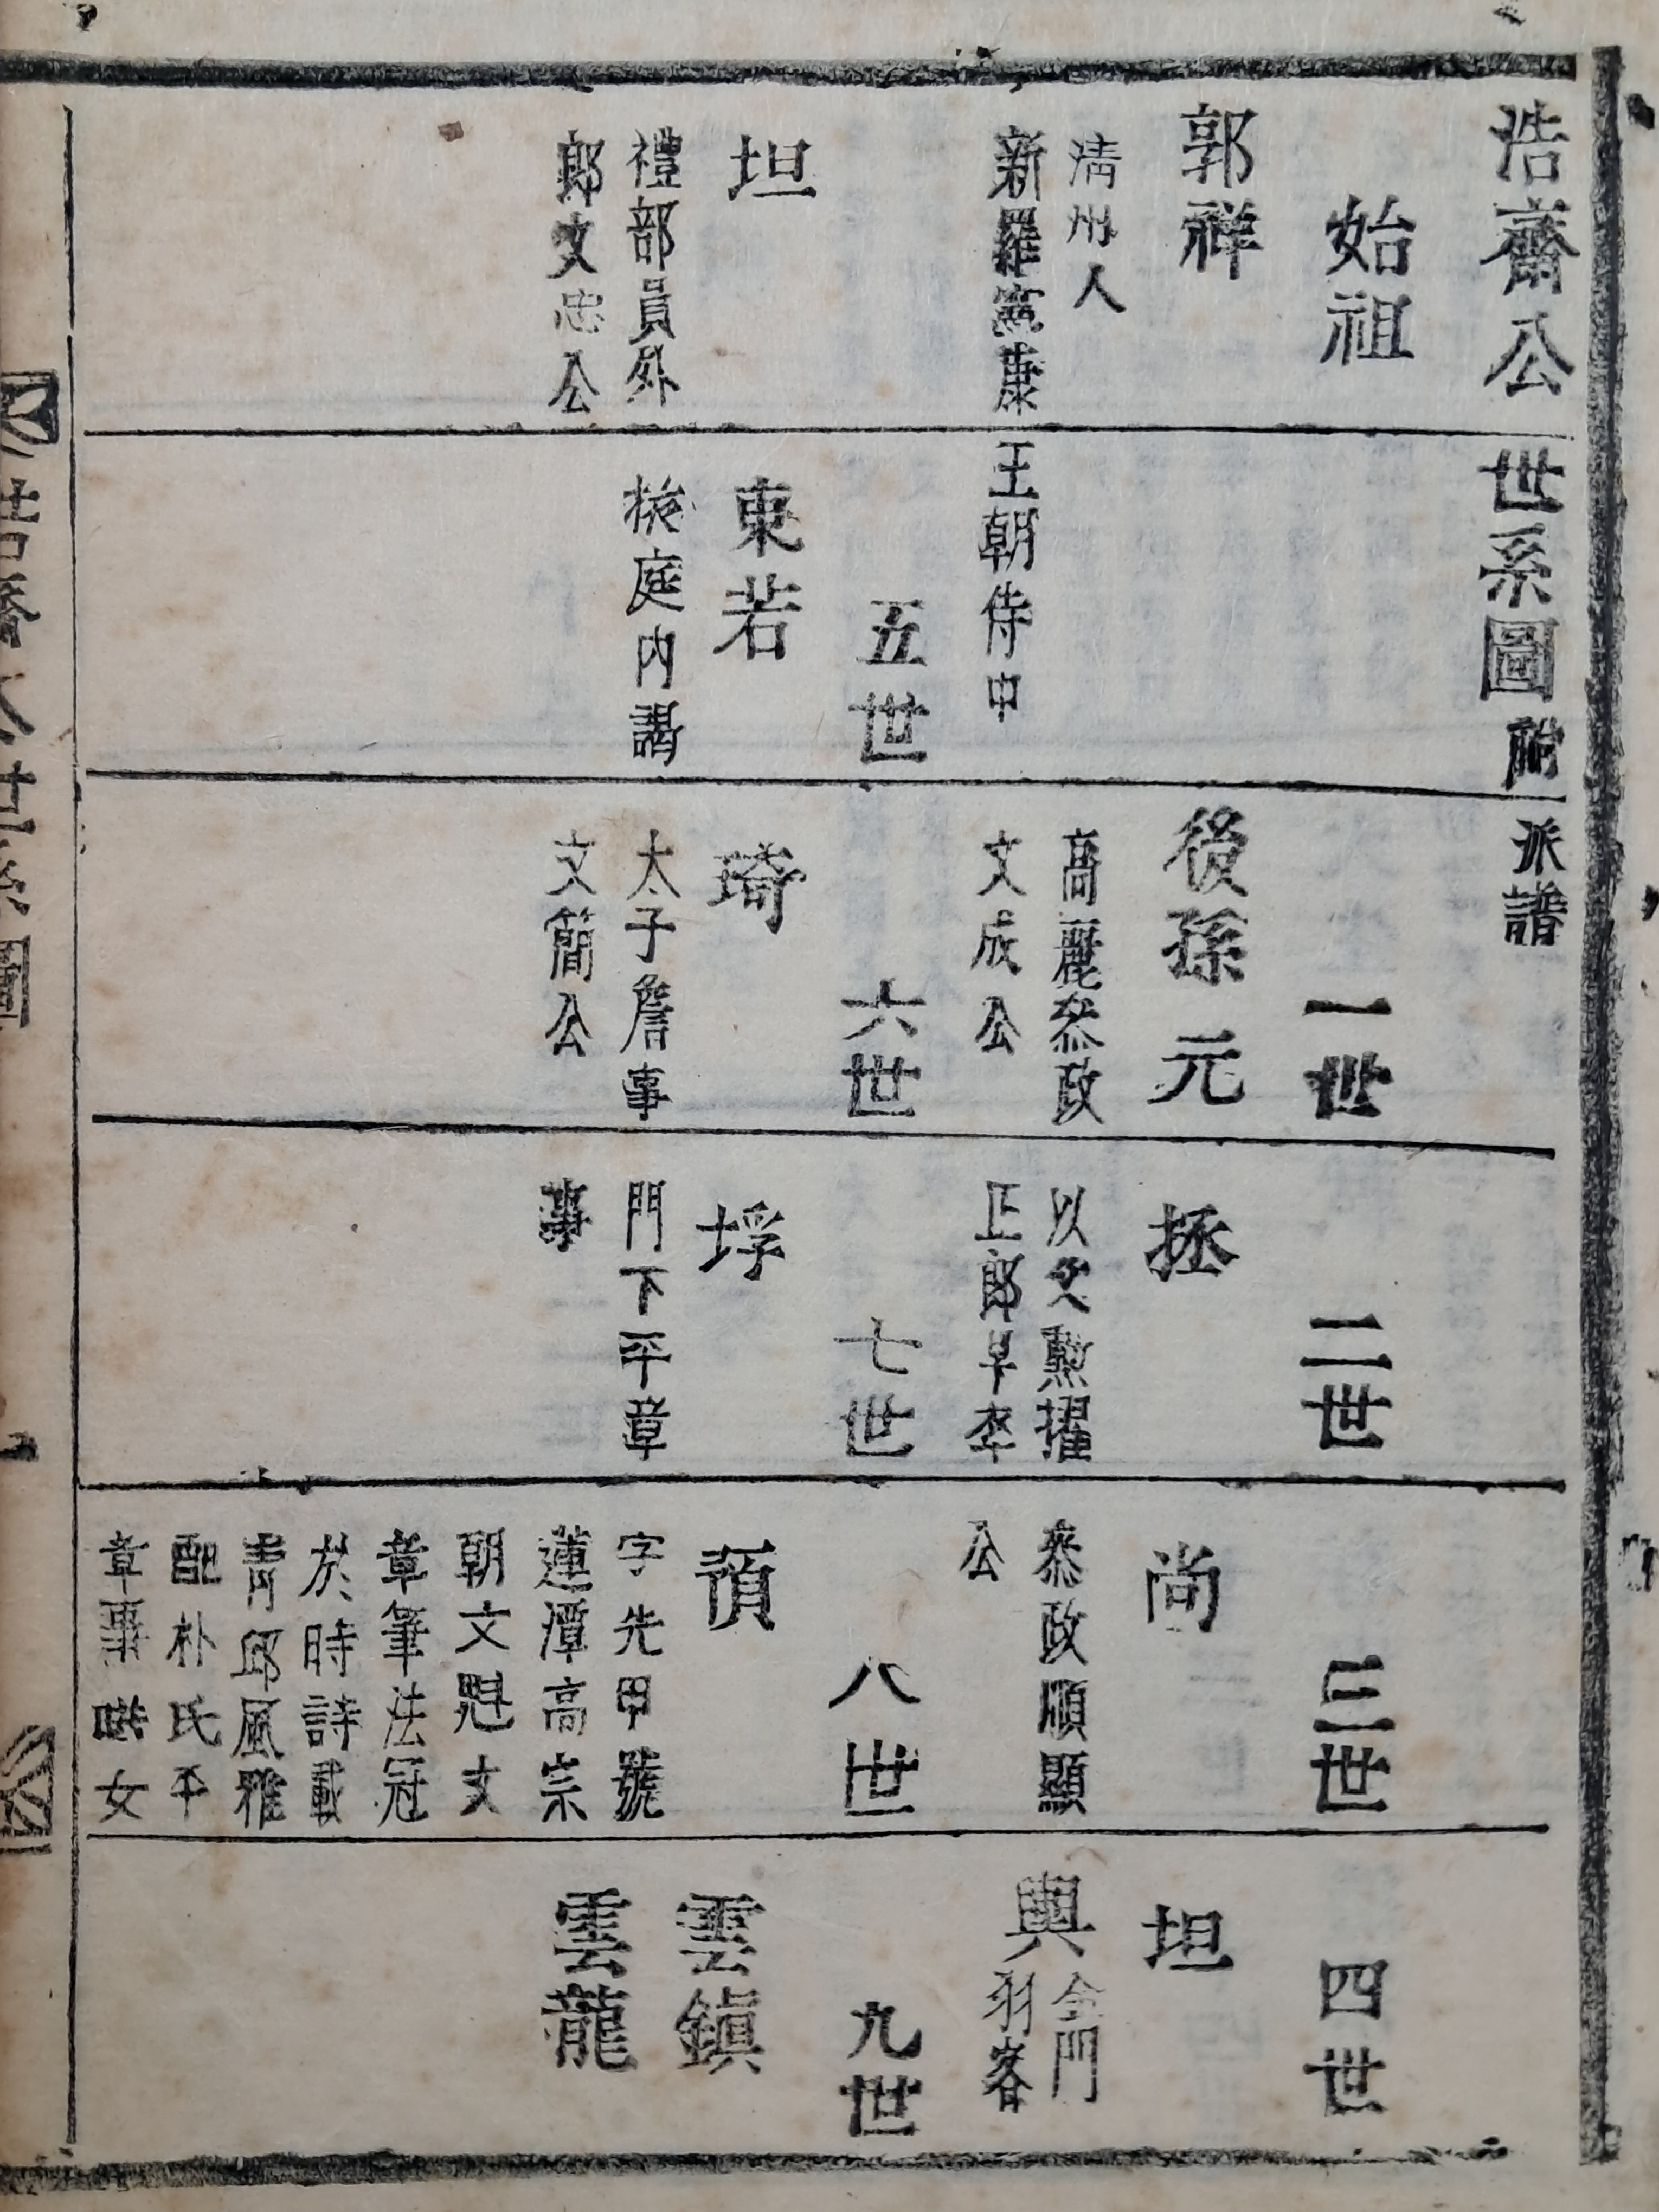 浩齋公世系圖 附派譜
始祖
郭祥
淸州人
新羅憲康王朝侍中
一世
後孫 元
高麗叅政
文成公
二世
拯
以父勲擢
正郎早卒
三世
尚
叅政順顯
公
四世
坦
輿
金門
羽客
坦
禮部員外
郎文忠公
五世
東若
掖庭內謁
六世
琦
太子詹事
文簡公
七世
垺
門下平章
事
八世
預
字先甲號
蓮潭高宗
朝文魁文
章筆法冠
於時詩載
靑邱風雅
配朴氏平
章事女
九世
雲鎭
雲龍
浩齋公世系圖